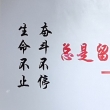 奋斗不停
生命不止
总是留